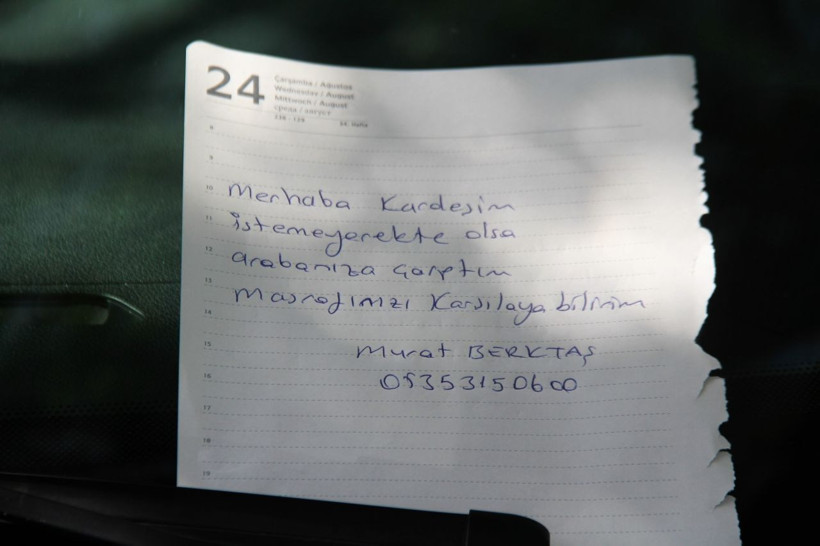 24
Çarşamba / Ağustos
Wednesday / August
Mittwoch / August
среда / август
8
9
10
merhaba Kardeşim
11
istemeyerekte olsa
12
arabanıza çarptım
13
masrafımzı Karşılaya bilirim
14
15
murat BERKTAŞ
16
05353150600
17
18
19